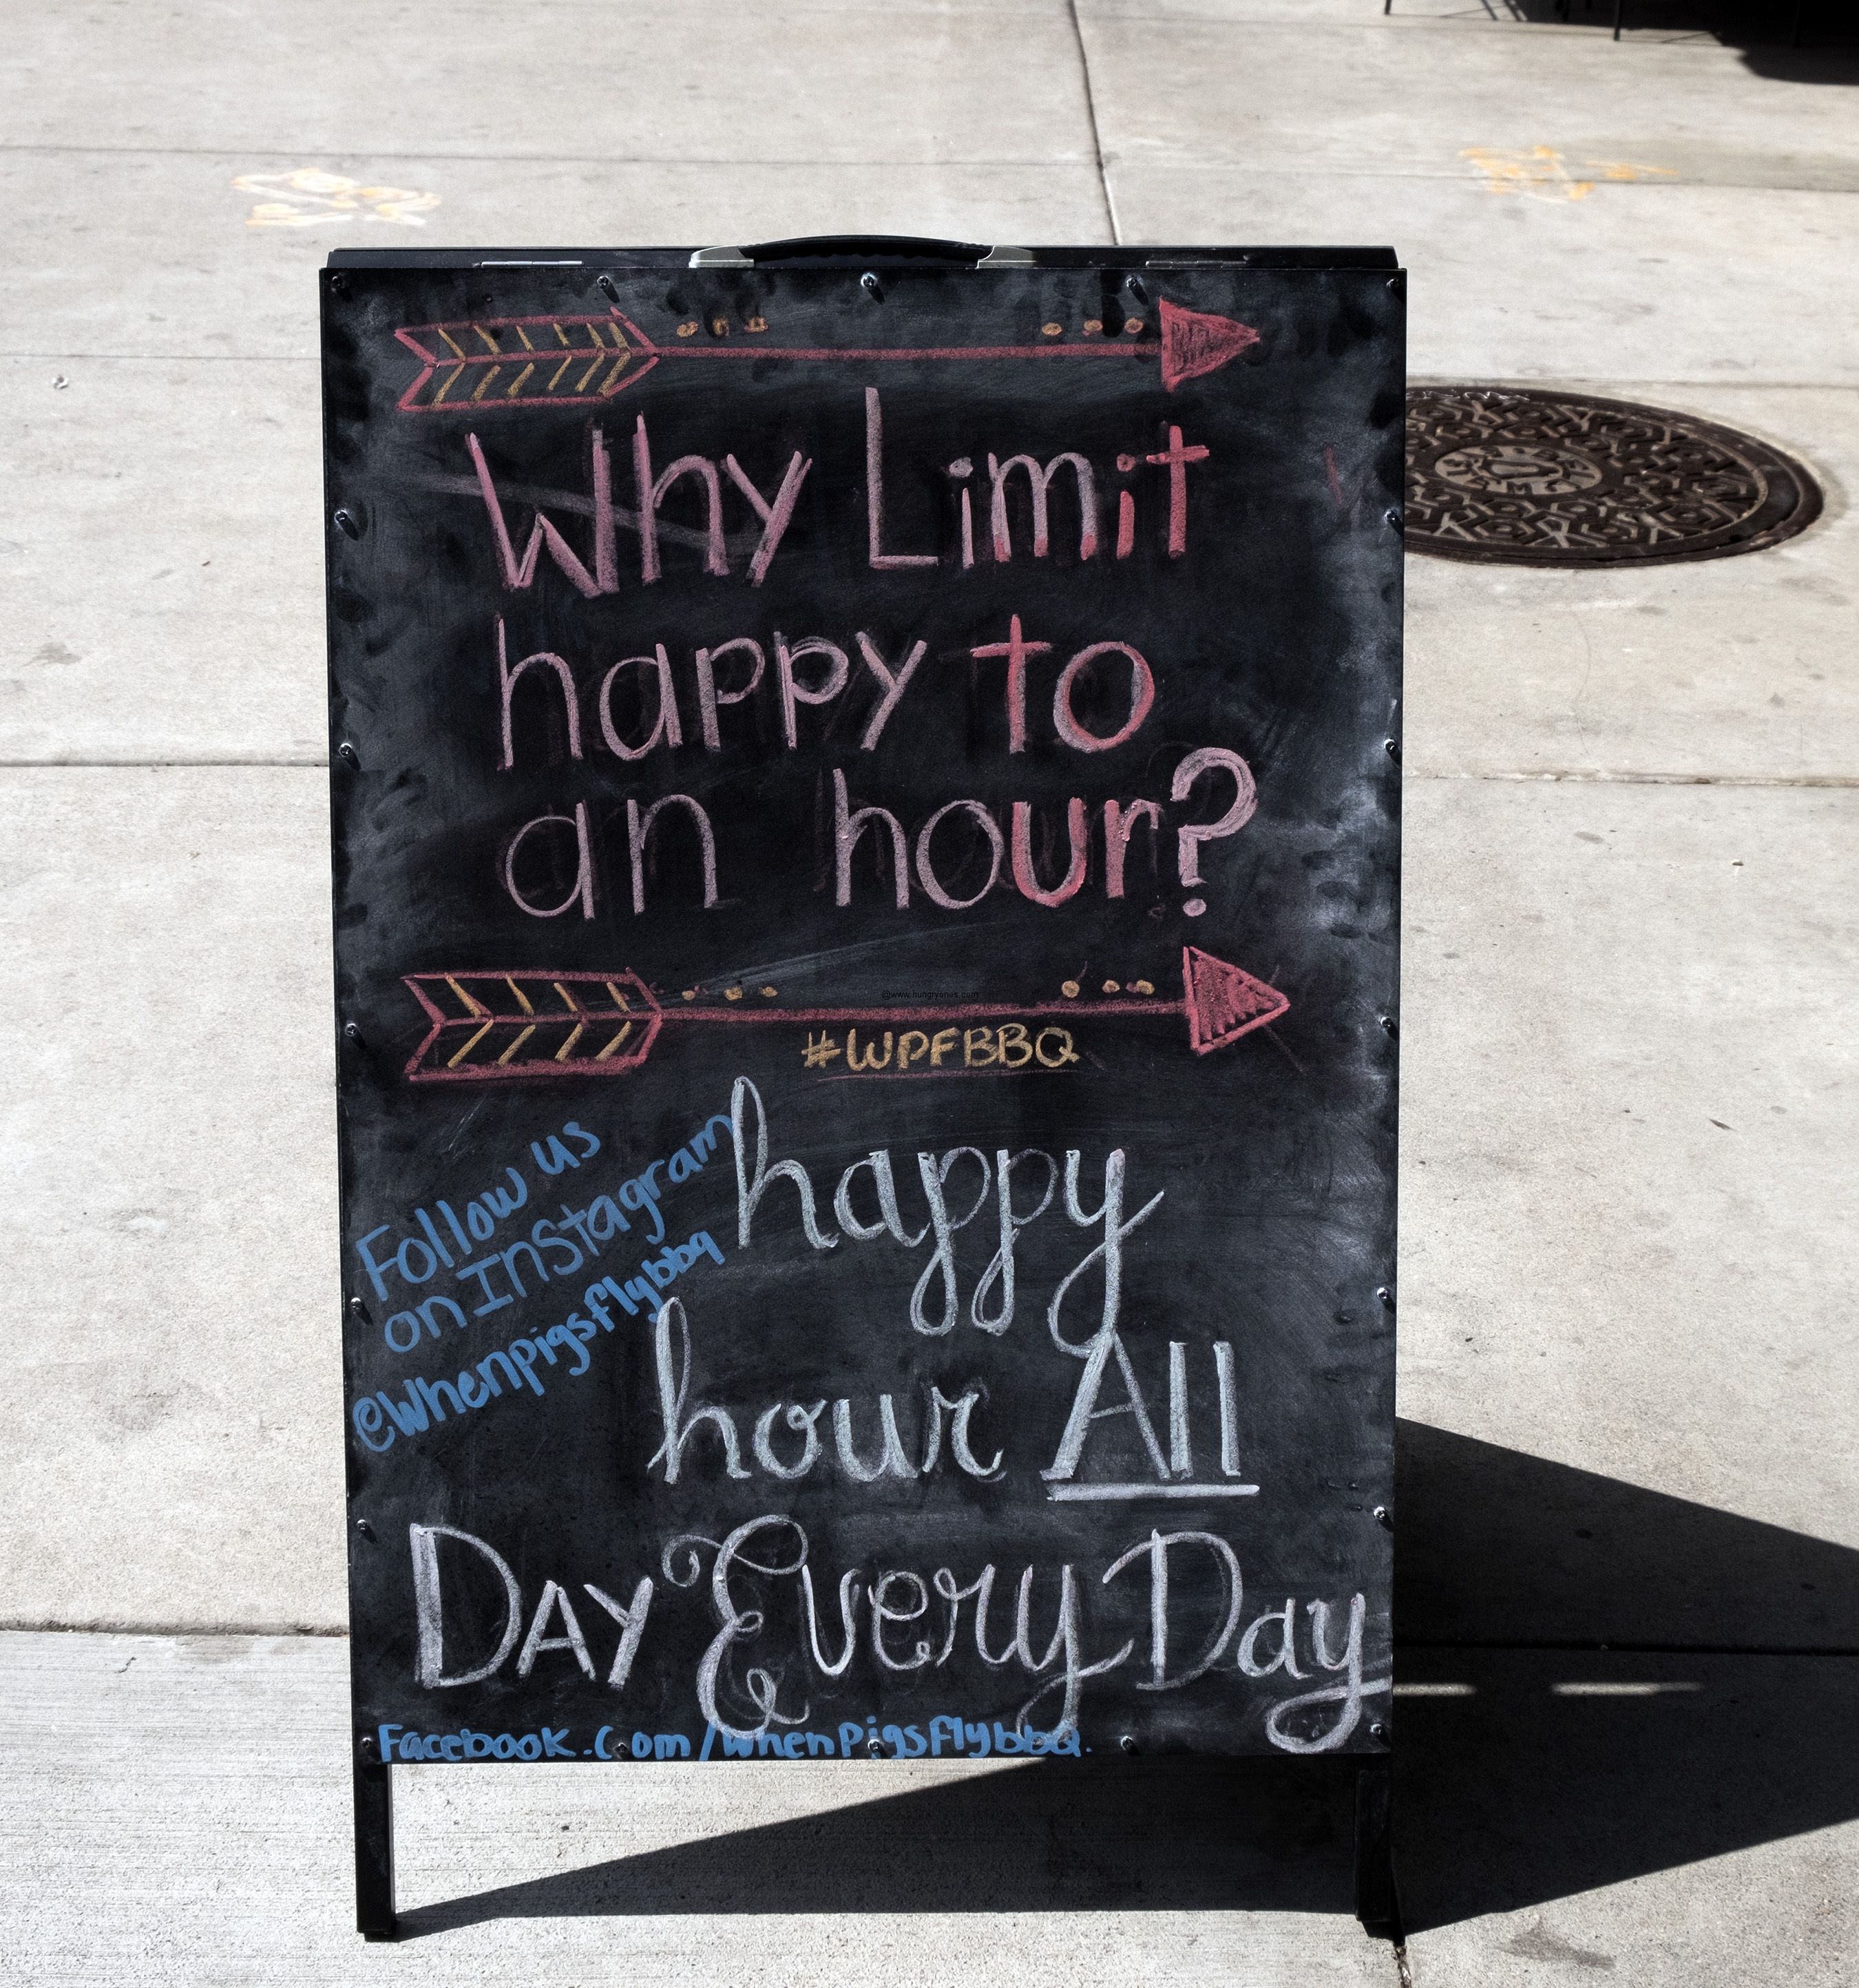 Why Limit
happy to
an hour?
@www.hungryones.com
#WPFBBQ
Follow us
on Instagram
@whenpigsflybbq
happy
hour All
Day Every Day
Facebook.Com/whenPigsflybbQ.